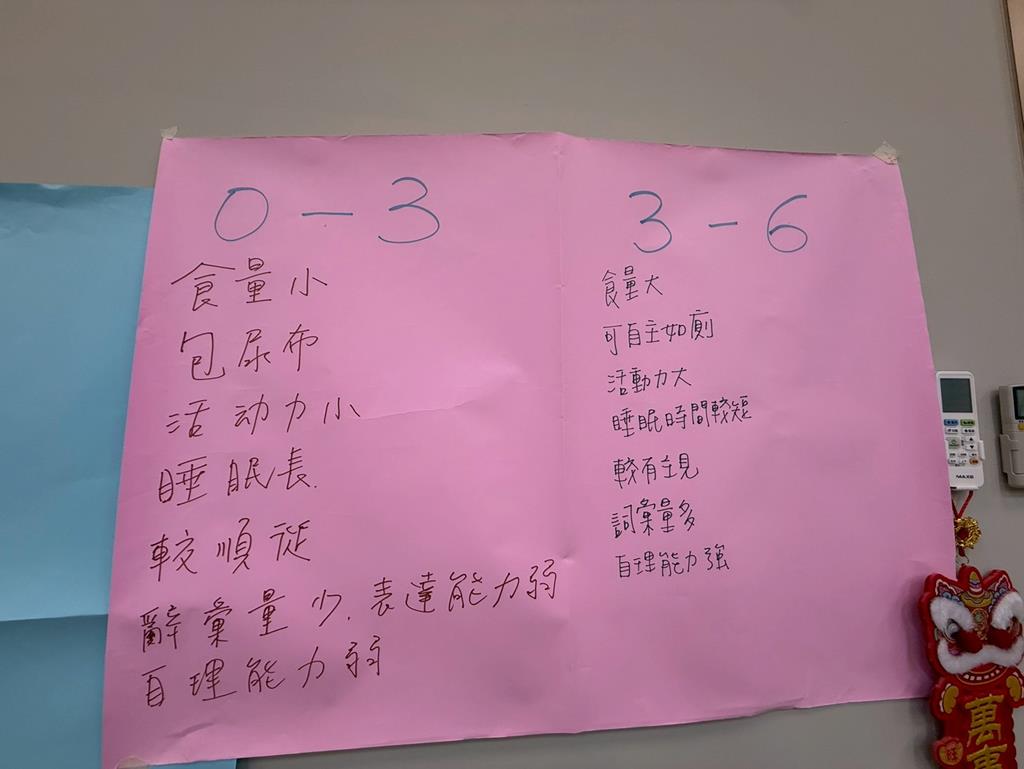 0-3
食量小
包尿布
活动力小
睡眠長.
較順從
辭彙量少.表達能力弱
自理能力弱
3-6
食量大
可自主如廁
活動力大
睡眠時間較短
較有主見
詞彙量多
自理能力強
MAXE
萬事